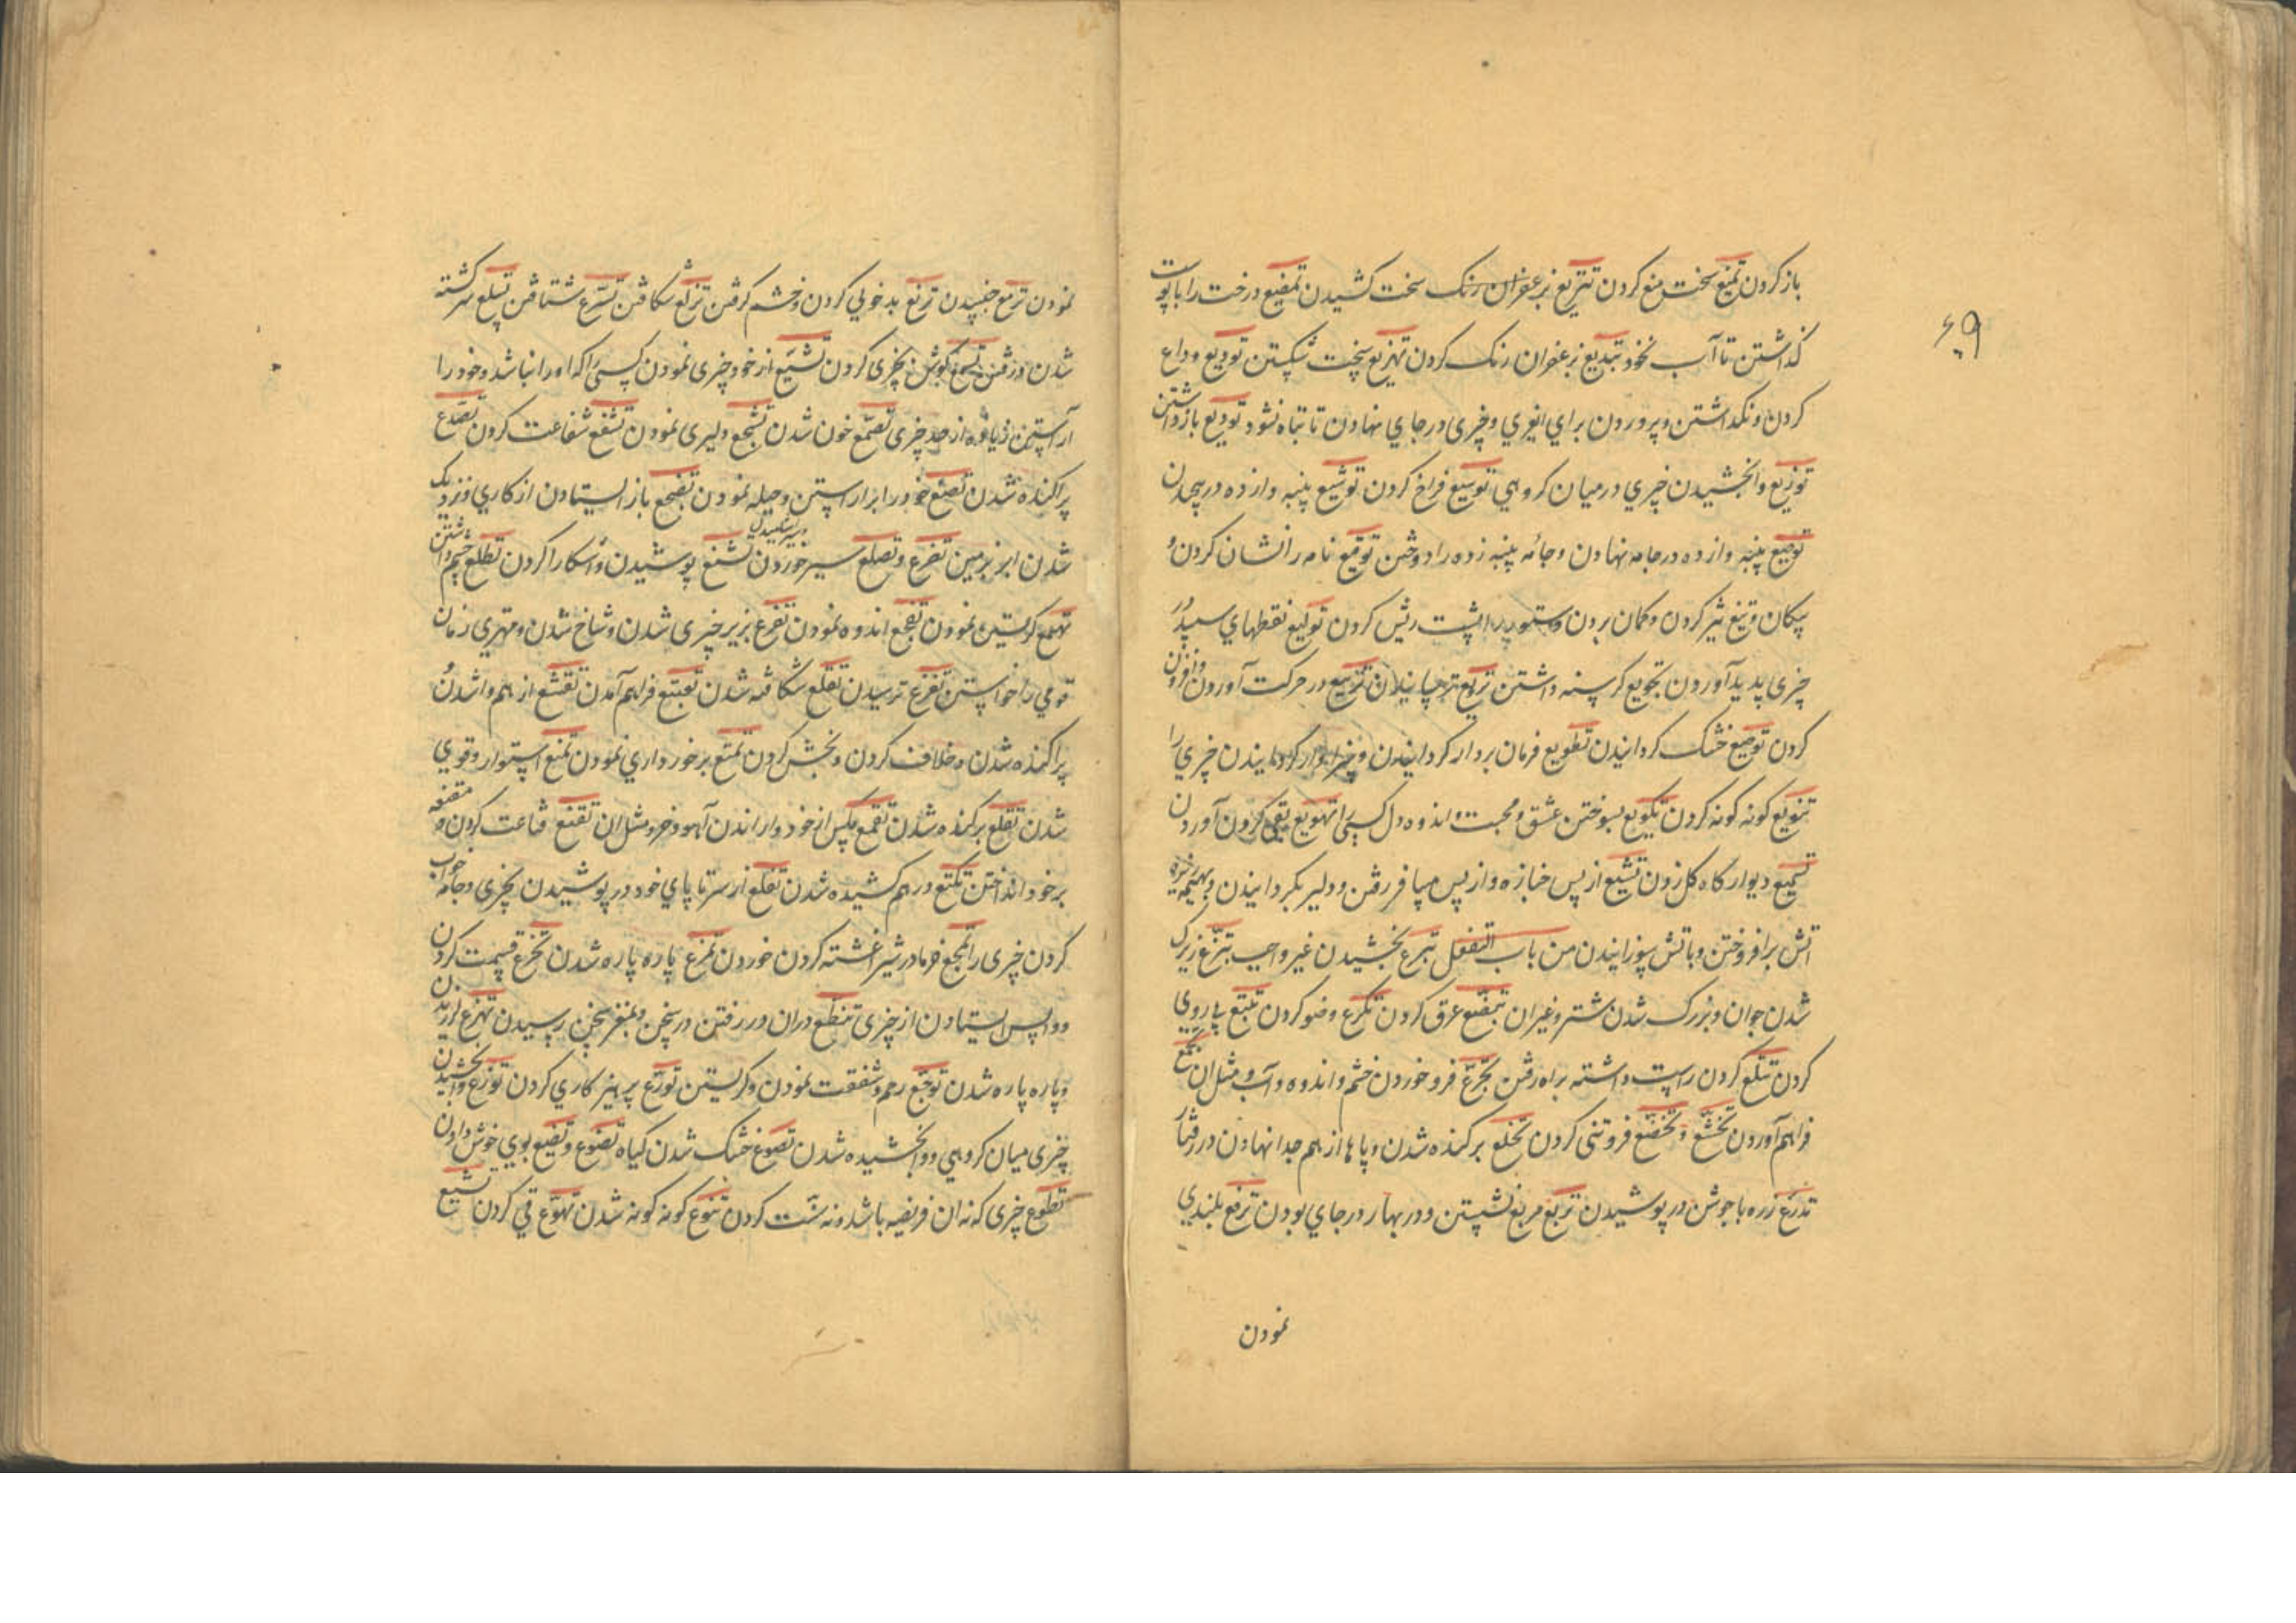 باز کردن تمنیع سخت منع کردن تتریع بزعفران رنک سخت کشیدن تمقیع درخت را با پوت
کذاشتن تا آب نخود تبدیع بزعفران رنک کردن تهزیع سخت شکستن تودیع وداع
کردن و نکهداشتن و پروردن برای انوری و چیزی در جای نهادن تا تباه نشود تودیع بازداشتن
توزیع وابخشیدن چیزی در میان کروهی توسیع فراخ کردن توشیع پنبه وازده در پیچیدن
توضیع پنبه وازده در جامه نهادن و جامه پنبه زده را دوختن توقیع نامه را نشان کردن و
پیکان و تیغ تیز کردن و کمان بردن و ستور را پشت ریش کردن تولیع نقطهای سپید در
چیزی پدید آوردن تجویع کرسنه داشتن تریع ترسانیدن تزییع در حرکت آوردن و افزون
کردن تصویع خشک کردانیدن تطویع فرمان بردار کردانیدن و کردانیدن چیزی را
تنویع کونه کونه کردن تکویع بسوختن عشق و محبت و اندوه دل کسی را تهویع بقی کردن آوردن
تسییع دیوار کاه کل زدن تشییع از پس جنازه و از پس مسافر رفتن و دلیر بکردانیدن و بهیمه تیزه
آتش برافروختن و باتش سوزانیدن من باب التفعل تبرع بخشیدن غیر واجب تبزع زیرک
شدن جوان و بزرک شدن شتر و غیر آن تبضع عرق کردن تکرع وضو کردن تتبع پی روی
کردن تتلع کردن راست داشته براه رفتن تجرع فرو خوردن خشم و اندوه و آب و مثل آن تجمع
فراهم آوردن تخشع و تخضع فروتنی کردن تخلع برکنده شدن و پاها از هم جدا نهادن در رفتار
تدرع زره با جوشن در پوشیدن تربع مربع نشستن و در بهار در جای بودن ترفع بلندی
نمودن
۶۹
نمودن ترمع جنبیدن تزبع بدخویی کردن و خشم کرفتن تزلع شکافتن تسرع شتافتن تسلع سرکشته
شدن در رفتن تسمع کوش بچیزی کردن تشبع از خود چیزی نمودن کسی را که او را نباشد و خود را
آراستن زیاده از حد چیزی تصمع خون شدن تشجع دلیری نمودن تشفع شفاعت کردن تصدع
پراکنده شدن تصنع خود را برآراستن و حیله نمودن تضجع باز ایستادن از کاری و نزدیک
شدن ابر بزمین تضرع و تضلع سیر خوردن تشنع پوشیدن و آشکارا کردن تطلع چشم داشتن
تهمع کریستن نمودن تفجع اندوه نمودن تفرع بزیر چیزی شدن و شاخ شدن و مهتری زنان
قومی را خواستن تفزع ترسیدن تفلع شکافته شدن تقبع فراهم آمدن تقشع از هم واشدن و
پراکنده شدن و خلاف کردن و بخش کردن تمتع برخورداری نمودن تمنع استوار و قوی
شدن تقلع برکنده شدن تقمع مکس از خود واراندن آهو و خر و مثل آن تقنع قناعت کردن و مقنعه
بر خود انداختن تکنع در هم کشیده شدن تلفع از سر تا پای خود در پوشیدن بچیزی و جامه خواب
کردن چیزی را تمجع خرما در شیر اغشته کردن خوردن تمزع پاره پاره شدن تخرع قسمت کردن
و واپس ایستادن از چیزی تنطع دران در رفتن در سخن و بمغز سخن رسیدن تهزع لرزیدن
و پاره پاره شدن توجع رحم و شفقت نمودن و کریستن تورع پرهیز کاری کردن توزع وابخشیدن
چیزی میان کروهی و وابخشیده شدن تصوع خشک شدن کیاه تضوع و تضیع بوی خوش دادن
تطوع چیزی که نه آن فریضه باشد و نه سنت کردن تنوع کونه کونه شدن تهوع قی کردن تشیع